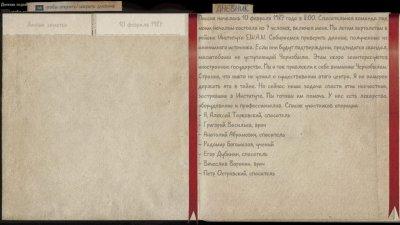 чтобы открыть/закрыть дневник
Личные заметки
10 февраля 1987
ДНЕВНИК
Миссия началась 10 февраля 1987 года в 8:00. Спасательная команда под
моим началом состояла из 7 человек, включая меня. Мы летим вертолетом в
Если они будут подтверждены, предвидится скандал,
масштабами не уступающий Чернобылю. Этим скоро заинтересуются
иностранные государства. Мы и так привлекли к себе внимание Чернобылем.
Страшно, что никто не узнал о существовании этого центра. Я не намерен
держать это в тайне. Но сейчас наша задача спасти этих несчастных,
застрявших в Институте. Мы готовы им помочь. У нас есть лекарства,
оборудование и профессионалы. Список участников операции:
- Я, Алексей Тарковский, спасатель
- Григорий Васильев, врач
- Анатолий Абрамович, спасатель
- Радомир Богомазов, ученый
- Егор Дубинин, спасатель
- Вячеслав Воронин, врач
- Петр Островский, спасатель